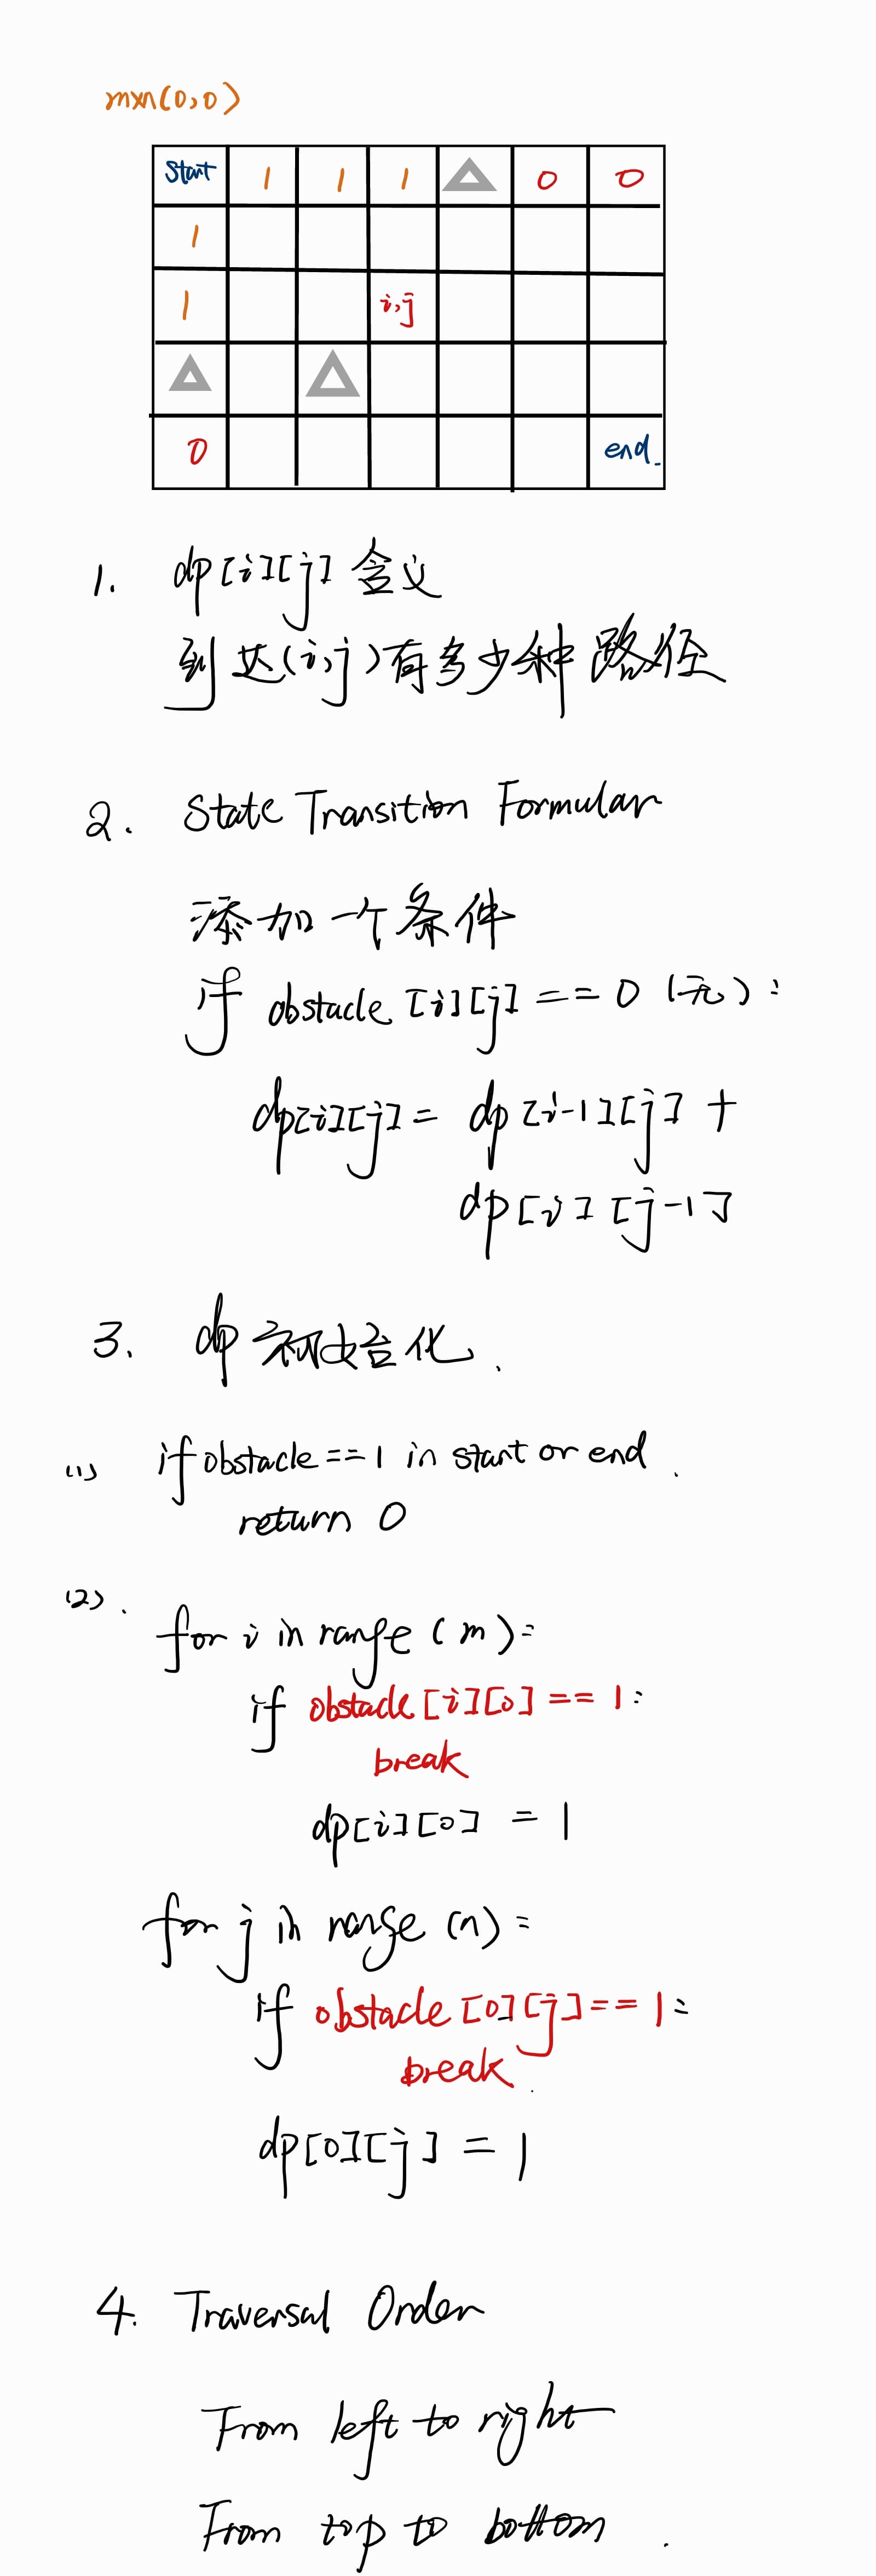 m×n(0,0)
Start 1 1 1 0 0
1
1 i,j
0 end.
1. dp[i][j] 含义
到达(i,j)有多少种路径
2. State Transition Formular
添加一个条件
if obstacle [i][j] == 0 (无):
dp[i][j] = dp[i-1][j] +
dp[i][j-1]
3. dp 初始化.
(1) if obstacle == 1 in start or end.
return 0
(2).
for i in range (m):
if obstacle[i][0] == 1:
break
dp[i][0] = 1
for j in range (n):
if obstacle [0][j] == 1:
break
dp[0][j] = 1
4. Traversal Order
From left to right
From top to bottom.